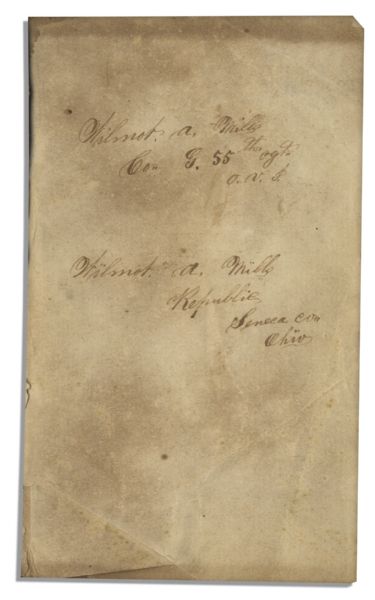 Wilmot. A. Mills
Co. G. 55th regt.
O. V. I.
Wilmot. A. Mills
Republic
Seneca Co.
Ohio